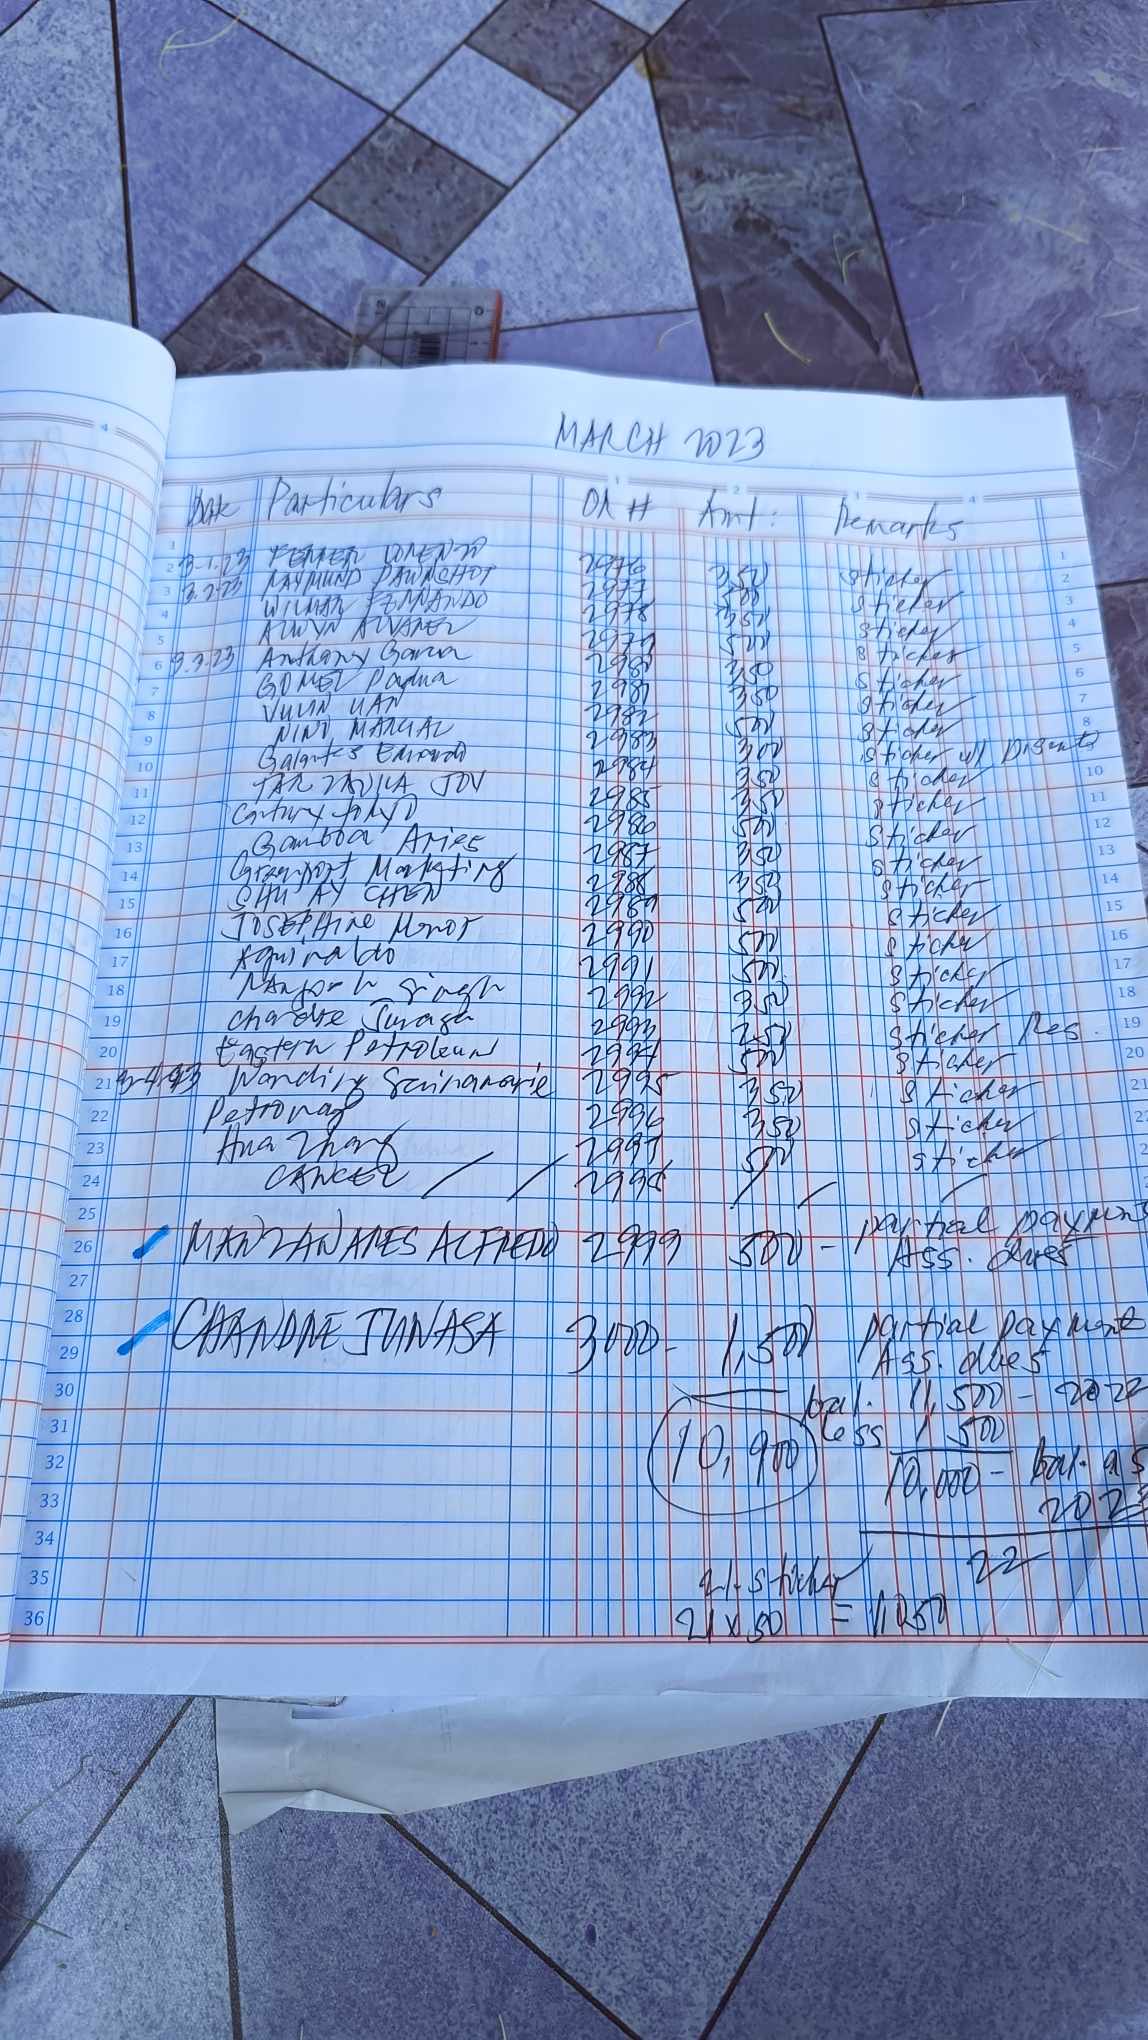 MARCH 2023
Date Particulars OR # Amt: Remarks
3-1.23 FERRER LORENZO 2976 350 sticker
3.2.23 RAYMUND PAWNSHOT 2977 500 sticker
WILMAR FERNANDO 2978 350 sticker
ALWYN ALVAREZ 2979 500 sticker
3.3.23 Anthony Garcia 2980 350 sticker
GOMEZ Padua 2981 350 sticker
2982 500 sticker
NINO MARCIAL 2983 300 sticker w/
Galantes 2984 350 sticker
JOV 2985 350 sticker
Century tokyo 2986 500 sticker
Gamboa Aries 2987 350 sticker
Marketing 2988 350 sticker
SHU AY CHEN 2989 500 sticker
JOSEPHINE 2990 500 sticker
Aquinaldo 2991 500 sticker
Singh 2992 350 sticker
2993 250 sticker Res.
Eastern Petroleum 2994 500 sticker
3-4-23 2995 350 sticker
Petronas 2996 350 sticker
Hua Zhang 2997 500 sticker
CANCEL 2998
MANZANARES ALFREDO 2999 500 - partial payment
Ass. dues
CHANDRE JUNASA 3000 - 1,500 partial payment
Ass. dues
bal. 11,500 - 2022
10,900 less 1 500
10,000 - bal. as
2023
22
21 - sticker
21 x 50 = 1,050